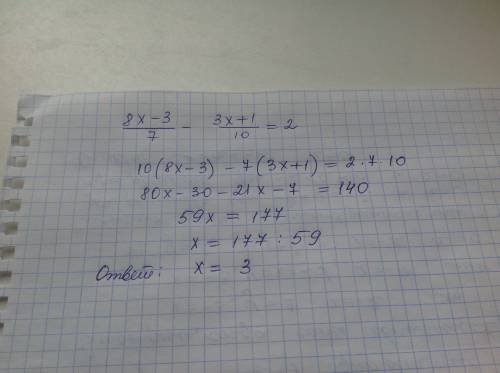 8x-3/7 - 3x+1/10 = 2
10(8x-3) - 7(3x+1) = 2·7·10
80x-30-21x-7 = 140
59x = 177
x = 177 : 59
Ответ: x = 3